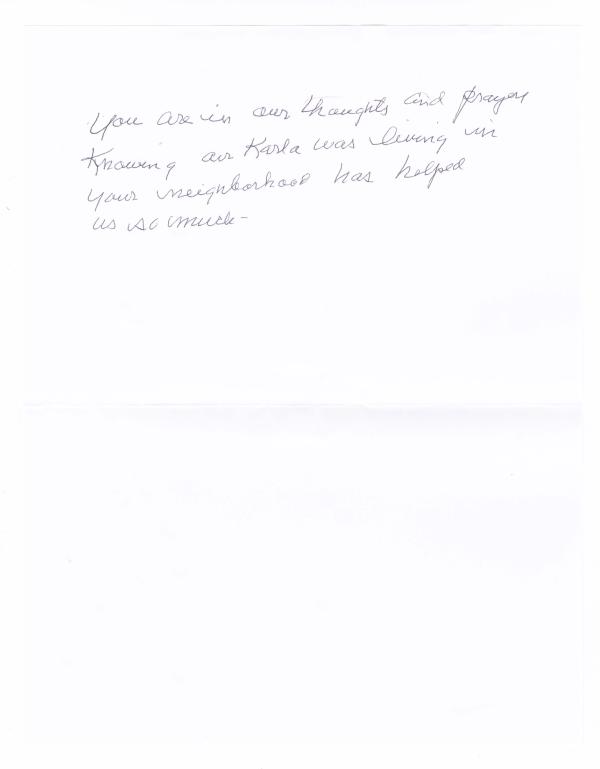 You are in our thoughts and prayers
Knowing our Karla was living in
your neighborhood has helped
us so much-